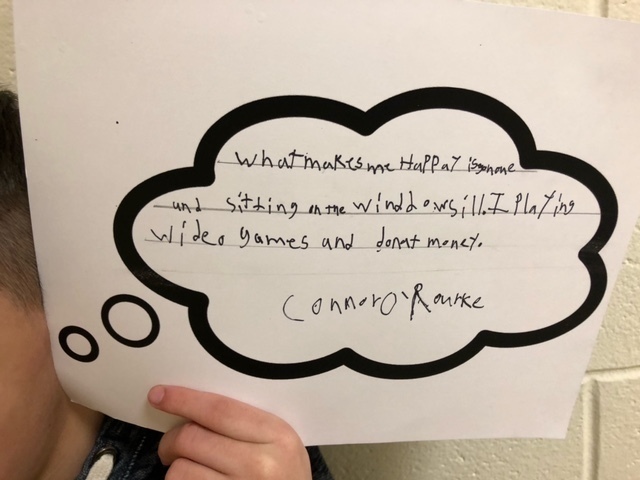 what makes me Happay is
and sitting on the winddowsill. I playing
wideo games and donat money.
Connor O'Rourke